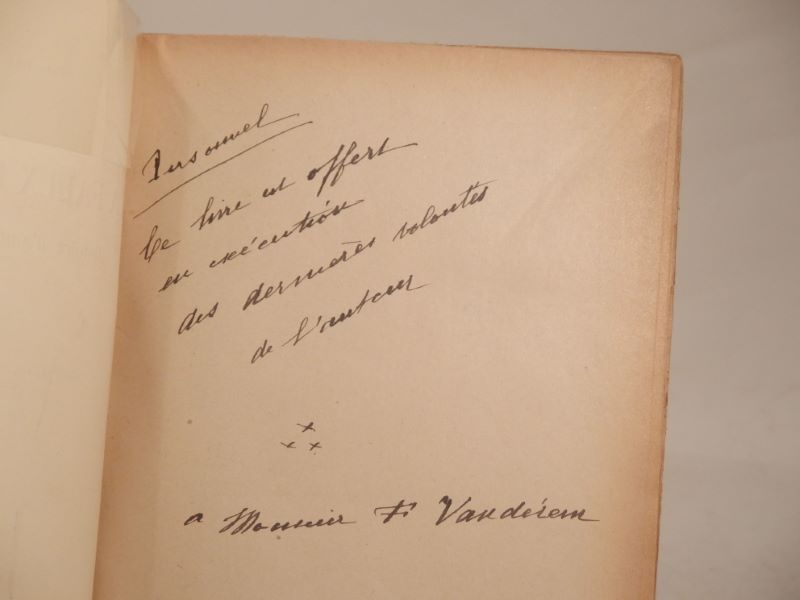 Personnel
Ce livre est offert
en exécution
des dernières volontés
de l'auteur
x
x x
a Monsieur F Vanderem